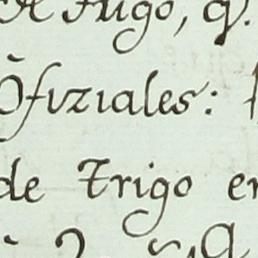 de Trigo, q.
Ofiziales:
de Trigo en